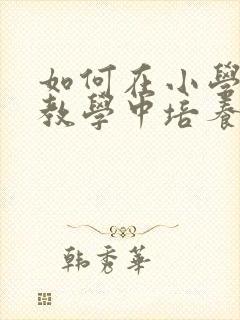 如何在小學
教學中培養
韩秀華